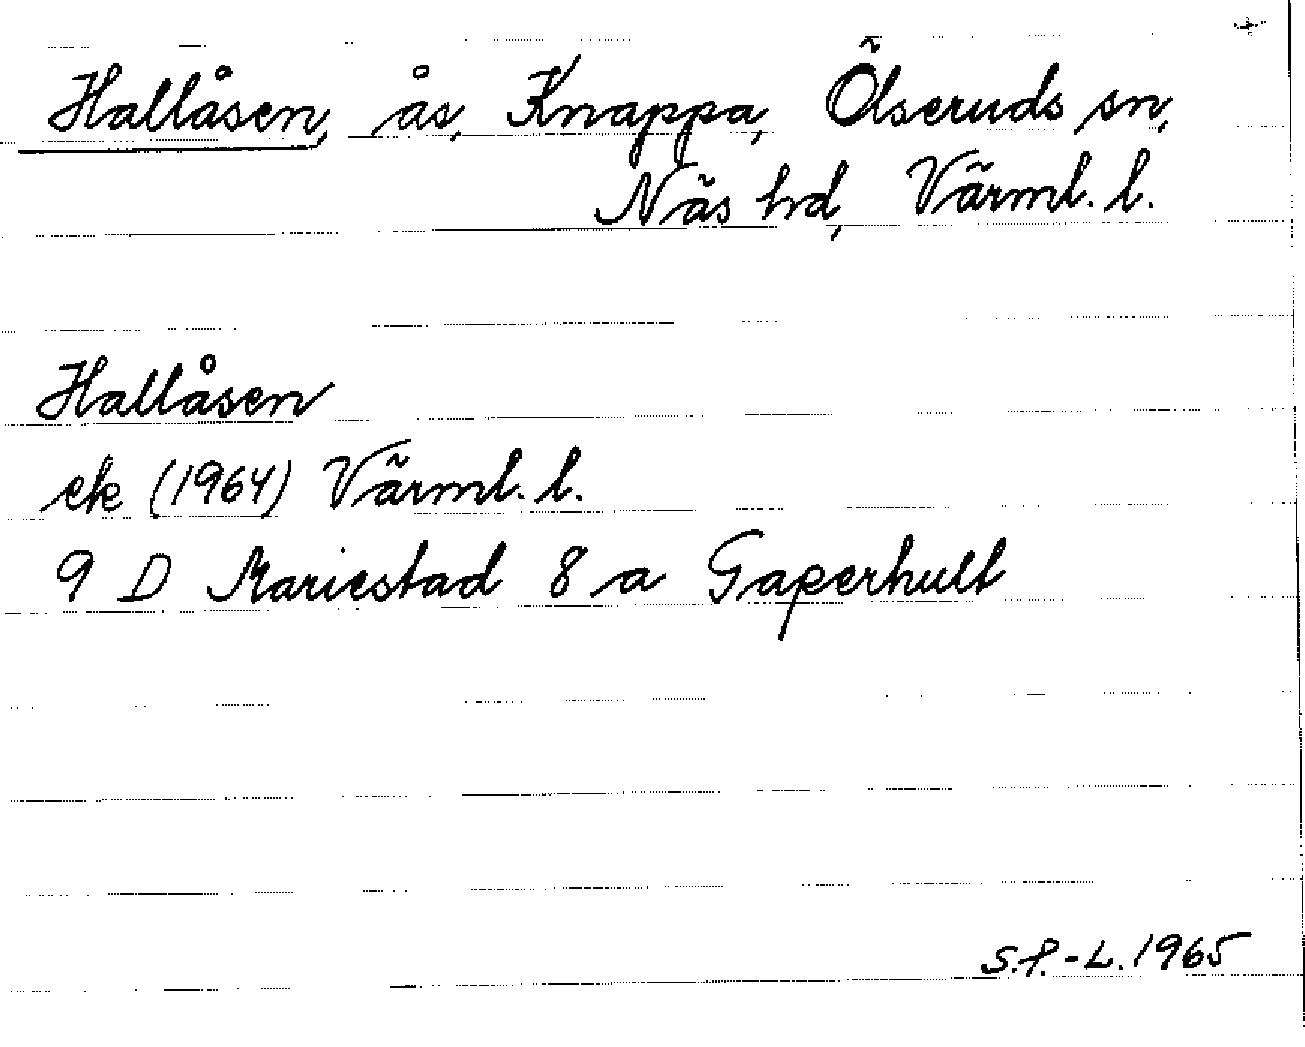 Hallåsen, ås, Knappa, Ölseruds sn,
Näs hd, Värml. l.
Hallåsen
ek (1964) Värml. l.
9 D Mariestad 8 a Gaperhult
S.P.-L. 1965